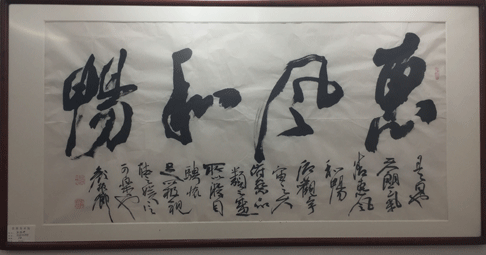 惠风和暢
是日也
天朗氣
清惠風
和暢
仰觀宇
宙之大
俯察品
類之盛
所以游目
騁懷
足以極視
聽之娛信
可樂也